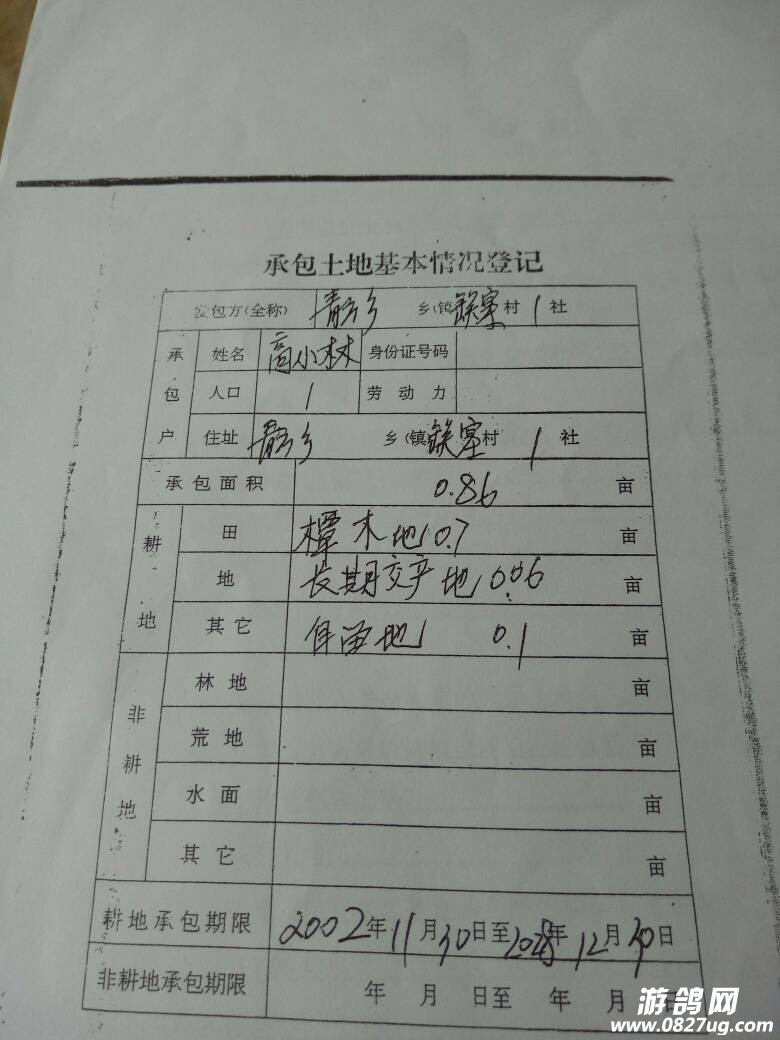 承包土地基本情况登记
发包方(全称) 乡(镇 村 1 社
承包户 姓名 高小林 身份证号码
人口 1 劳动力
住址 乡(镇 村 1 社
承包面积 0.86 亩
耕地 田 樟木地 0.7 亩
地 长期交产地 0.06 亩
其它 自留地 0.1 亩
非耕地 林地 亩
荒地 亩
水面 亩
其它 亩
耕地承包期限 2002年11月30日至2028年12月30日
非耕地承包期限 年 月 日至 年 月 日
游鸽网
www.0827ug.com